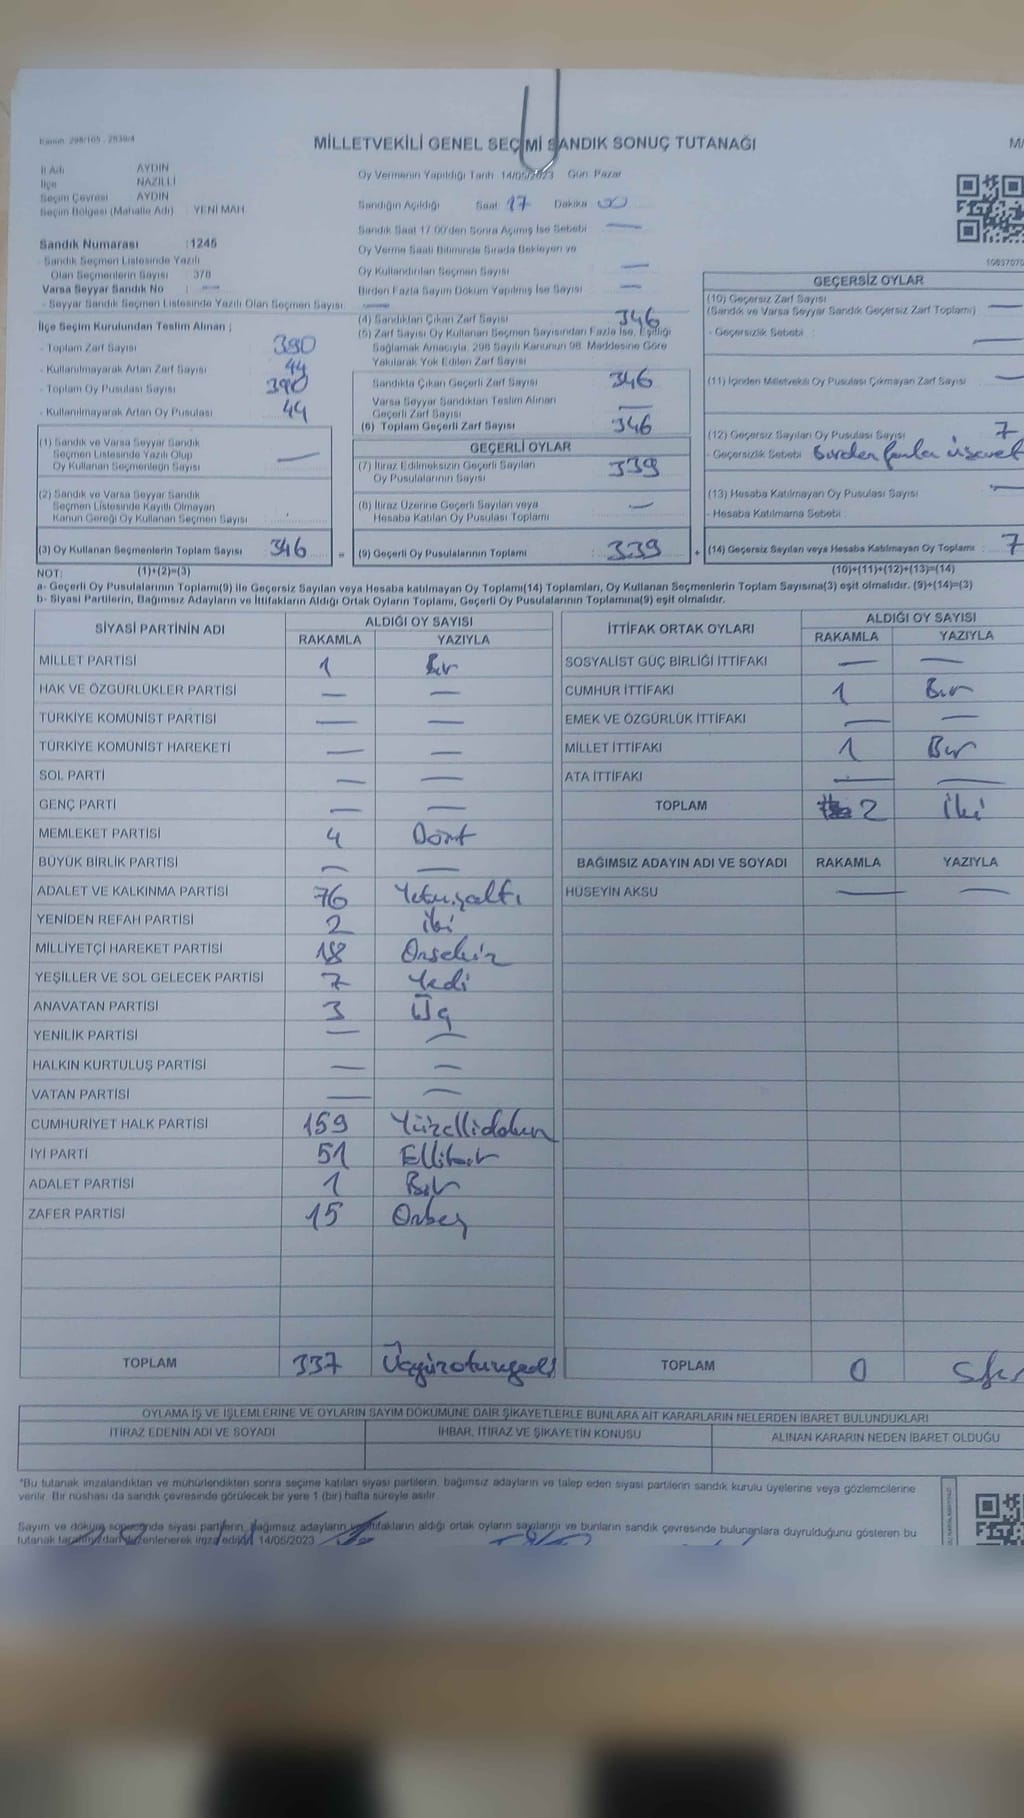 Kanun: 298/105 - 2839/4
MİLLETVEKİLİ GENEL SEÇİMİ SANDIK SONUÇ TUTANAĞI
İl Adı AYDIN
İlçe NAZİLLİ
Seçim Çevresi AYDIN
Seçim Bölgesi (Mahalle Adı) YENİ MAH
Oy Vermenin Yapıldığı Tarih 14/05/2023 Gün Pazar
Sandığın Açıldığı Saat 17 Dakika 00
Sandık Saat 17.00'den Sonra Açımış İse Sebebi —
Oy Verme Saati Bitiminde Sırada Bekleyen ve
Oy Kullandırılan Seçmen Sayısı —
Birden Fazla Sayım Döküm Yapılmış İse Sayısı —
Sandık Numarası :1245
Sandık Seçmen Listesinde Yazılı
Olan Seçmenlerin Sayısı : 378
Varsa Seyyar Sandık No : —
- Seyyar Sandık Seçmen Listesinde Yazılı Olan Seçmen Sayısı: —
İlçe Seçim Kurulundan Teslim Alınan ;
- Toplam Zarf Sayısı 390
- Kullanılmayarak Artan Zarf Sayısı 44
- Toplam Oy Pusulası Sayısı 390
- Kullanılmayarak Artan Oy Pusulası 44
(1) Sandık ve Varsa Seyyar Sandık
Seçmen Listesinde Yazılı Olup
Oy Kullanan Seçmenlerin Sayısı —
(2) Sandık ve Varsa Seyyar Sandık
Seçmen Listesinde Kayıtlı Olmayan
Kanun Gereği Oy Kullanan Seçmen Sayısı
(3) Oy Kullanan Seçmenlerin Toplam Sayısı 346
(1)+(2)=(3)
(4) Sandıktan Çıkan Zarf Sayısı 346
(5) Zarf Sayısı Oy Kullanan Seçmen Sayısından Fazla İse, Eşitliği
Sağlamak Amacıyla, 298 Sayılı Kanunun 98. Maddesine Göre
Yakılarak Yok Edilen Zarf Sayısı
Sandıkta Çıkan Geçerli Zarf Sayısı 346
Varsa Seyyar Sandıktan Teslim Alınan
Geçerli Zarf Sayısı —
(6) Toplam Geçerli Zarf Sayısı 346
GEÇERLİ OYLAR
(7) İtiraz Edilmeksizin Geçerli Sayılan
Oy Pusulasının Sayısı 339
(8) İtiraz Üzerine Geçerli Sayılan veya
Hesaba Katılan Oy Pusulası Toplamı —
= (9) Geçerli Oy Pusulalarının Toplamı : 339
GEÇERSİZ OYLAR
(10) Geçersiz Zarf Sayısı
(Sandık ve Varsa Seyyar Sandık Geçersiz Zarf Toplamı) —
- Geçersizlik Sebebi : —
(11) İçinden Milletvekili Oy Pusulası Çıkmayan Zarf Sayısı —
(12) Geçersiz Sayılan Oy Pusulası Sayısı 7
- Geçersizlik Sebebi birden fazla
(13) Hesaba Katılmayan Oy Pusulası Sayısı —
- Hesaba Katılmama Sebebi :
+ (14) Geçersiz Sayılan veya Hesaba Katılmayan Oy Toplamı : 7
(10)+(11)+(12)+(13)=(14)
NOT:
a- Geçerli Oy Pusulalarının Toplamı(9) ile Geçersiz Sayılan veya Hesaba katılmayan Oy Toplamı(14) Toplamları, Oy Kullanan Seçmenlerin Toplam Sayısına(3) eşit olmalıdır. (9)+(14)=(3)
b- Siyasi Partilerin, Bağımsız Adayların ve İttifakların Aldığı Ortak Oyların Toplamı, Geçerli Oy Pusulalarının Toplamına(9) eşit olmalıdır.
SİYASİ PARTİNİN ADI ALDIĞI OY SAYISI
RAKAMLA YAZIYLA
MİLLET PARTİSİ 1 Bir
HAK VE ÖZGÜRLÜKLER PARTİSİ — —
TÜRKİYE KOMÜNİST PARTİSİ — —
TÜRKİYE KOMÜNİST HAREKETİ — —
SOL PARTİ — —
GENÇ PARTİ — —
MEMLEKET PARTİSİ 4 Dört
BÜYÜK BİRLİK PARTİSİ — —
ADALET VE KALKINMA PARTİSİ 76 Yetmişaltı
YENİDEN REFAH PARTİSİ 2 iki
MİLLİYETÇİ HAREKET PARTİSİ 18 Onsekiz
YEŞİLLER VE SOL GELECEK PARTİSİ 7 Yedi
ANAVATAN PARTİSİ 3 Üç
YENİLİK PARTİSİ — —
HALKIN KURTULUŞ PARTİSİ — —
VATAN PARTİSİ — —
CUMHURİYET HALK PARTİSİ 159 Yüzellidokuz
İYİ PARTİ 51 Ellibir
ADALET PARTİSİ 1 Bir
ZAFER PARTİSİ 15 Onbeş
TOPLAM 337 Üçyüzotuzyedi
İTTİFAK ORTAK OYLARI ALDIĞI OY SAYISI
RAKAMLA YAZIYLA
SOSYALİST GÜÇ BİRLİĞİ İTTİFAKI — —
CUMHUR İTTİFAKI 1 Bir
EMEK VE ÖZGÜRLÜK İTTİFAKI — —
MİLLET İTTİFAKI 1 Bir
ATA İTTİFAKI — —
TOPLAM 2 İki
BAĞIMSIZ ADAYIN ADI VE SOYADI RAKAMLA YAZIYLA
HÜSEYİN AKSU — —
TOPLAM 0
OYLAMA İŞ VE İŞLEMLERİNE VE OYLARIN SAYIM DÖKÜMÜNE DAİR ŞİKAYETLERLE BUNLARA AİT KARARLARIN NELERDEN İBARET BULUNDUKLARI
İTİRAZ EDENİN ADI VE SOYADI İHBAR, İTİRAZ VE ŞİKAYETİN KONUSU ALINAN KARARIN NEDEN İBARET OLDUĞU
*Bu tutanak imzalandıktan ve mühürlendikten sonra seçime katılan siyasi partilerin, bağımsız adayların ve talep eden siyasi partilerin sandık kurulu üyelerine veya gözlemcilerine
verilir. Bir nüshası da sandık çevresinde görülecek bir yere 1 (bir) hafta süreyle asılır.
Sayım ve döküm sonucunda siyasi partilerin, bağımsız adayların ve ittifakların aldığı ortak oyların sayılarını ve bunların sandık çevresinde bulunanlara duyrulduğunu gösteren bu
tutanak tarafımızdan düzenlenerek imza edildi. 14/05/2023